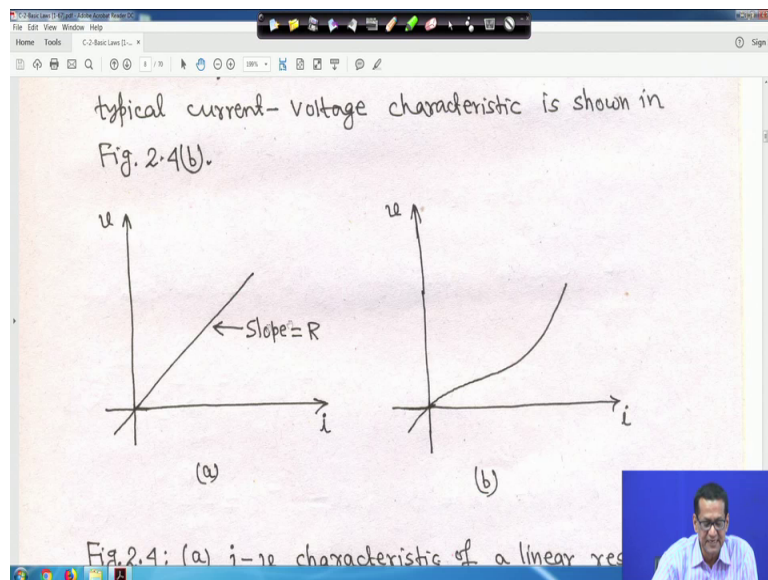 C-2-Basic Laws [1-67].pdf - Adobe Acrobat Reader DC
File Edit View Window Help
Home Tools C-2-Basic Laws [1-... ×
Sign
8 / 70
199%
typical current-voltage characteristic is shown in
Fig. 2.4(b).
v
v
←Slope=R
i
i
(a)
(b)
Fig.2.4: (a) i-v characteristic of a linear res